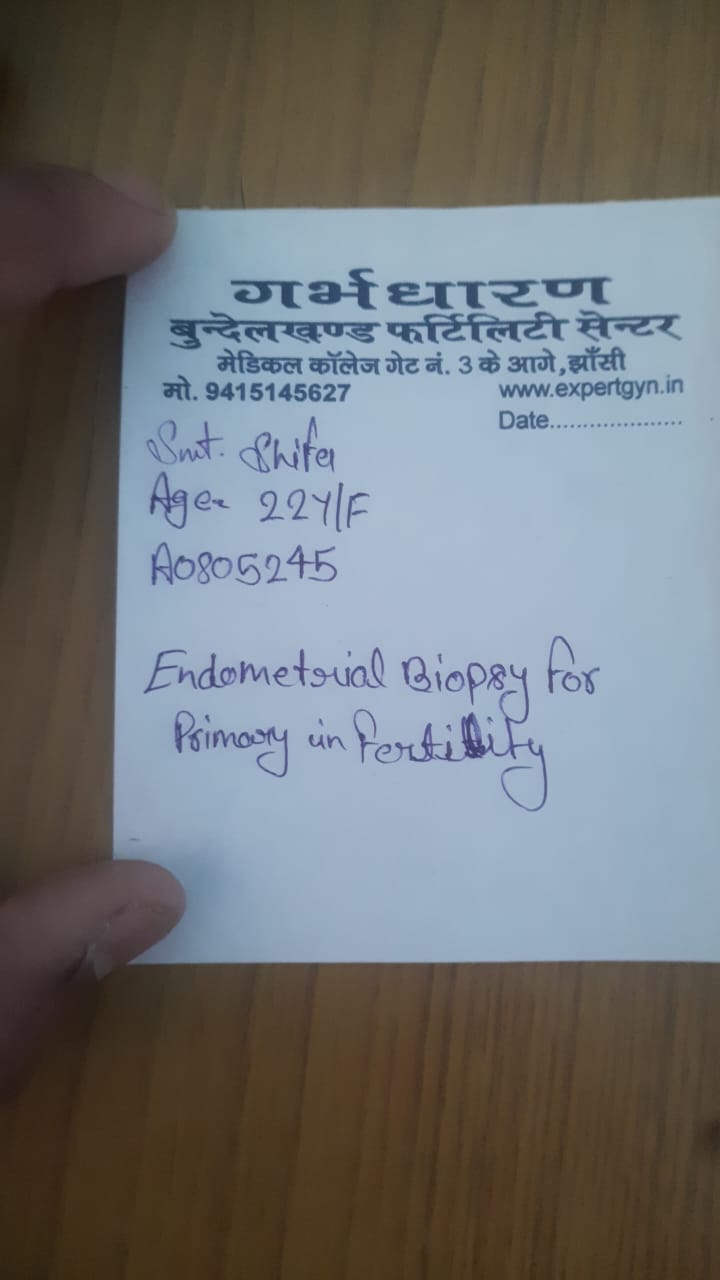 गर्भधारण
बुन्देलखण्ड फर्टिलिटी सेन्टर
मेडिकल कॉलेज गेट नं. 3 के आगे,झाँसी
मो. 9415145627 www.expertgyn.in
Date....................
Smt. Shifa
Age- 22Y/F
A0805245
Endometrial Biopsy for
Primary infertility